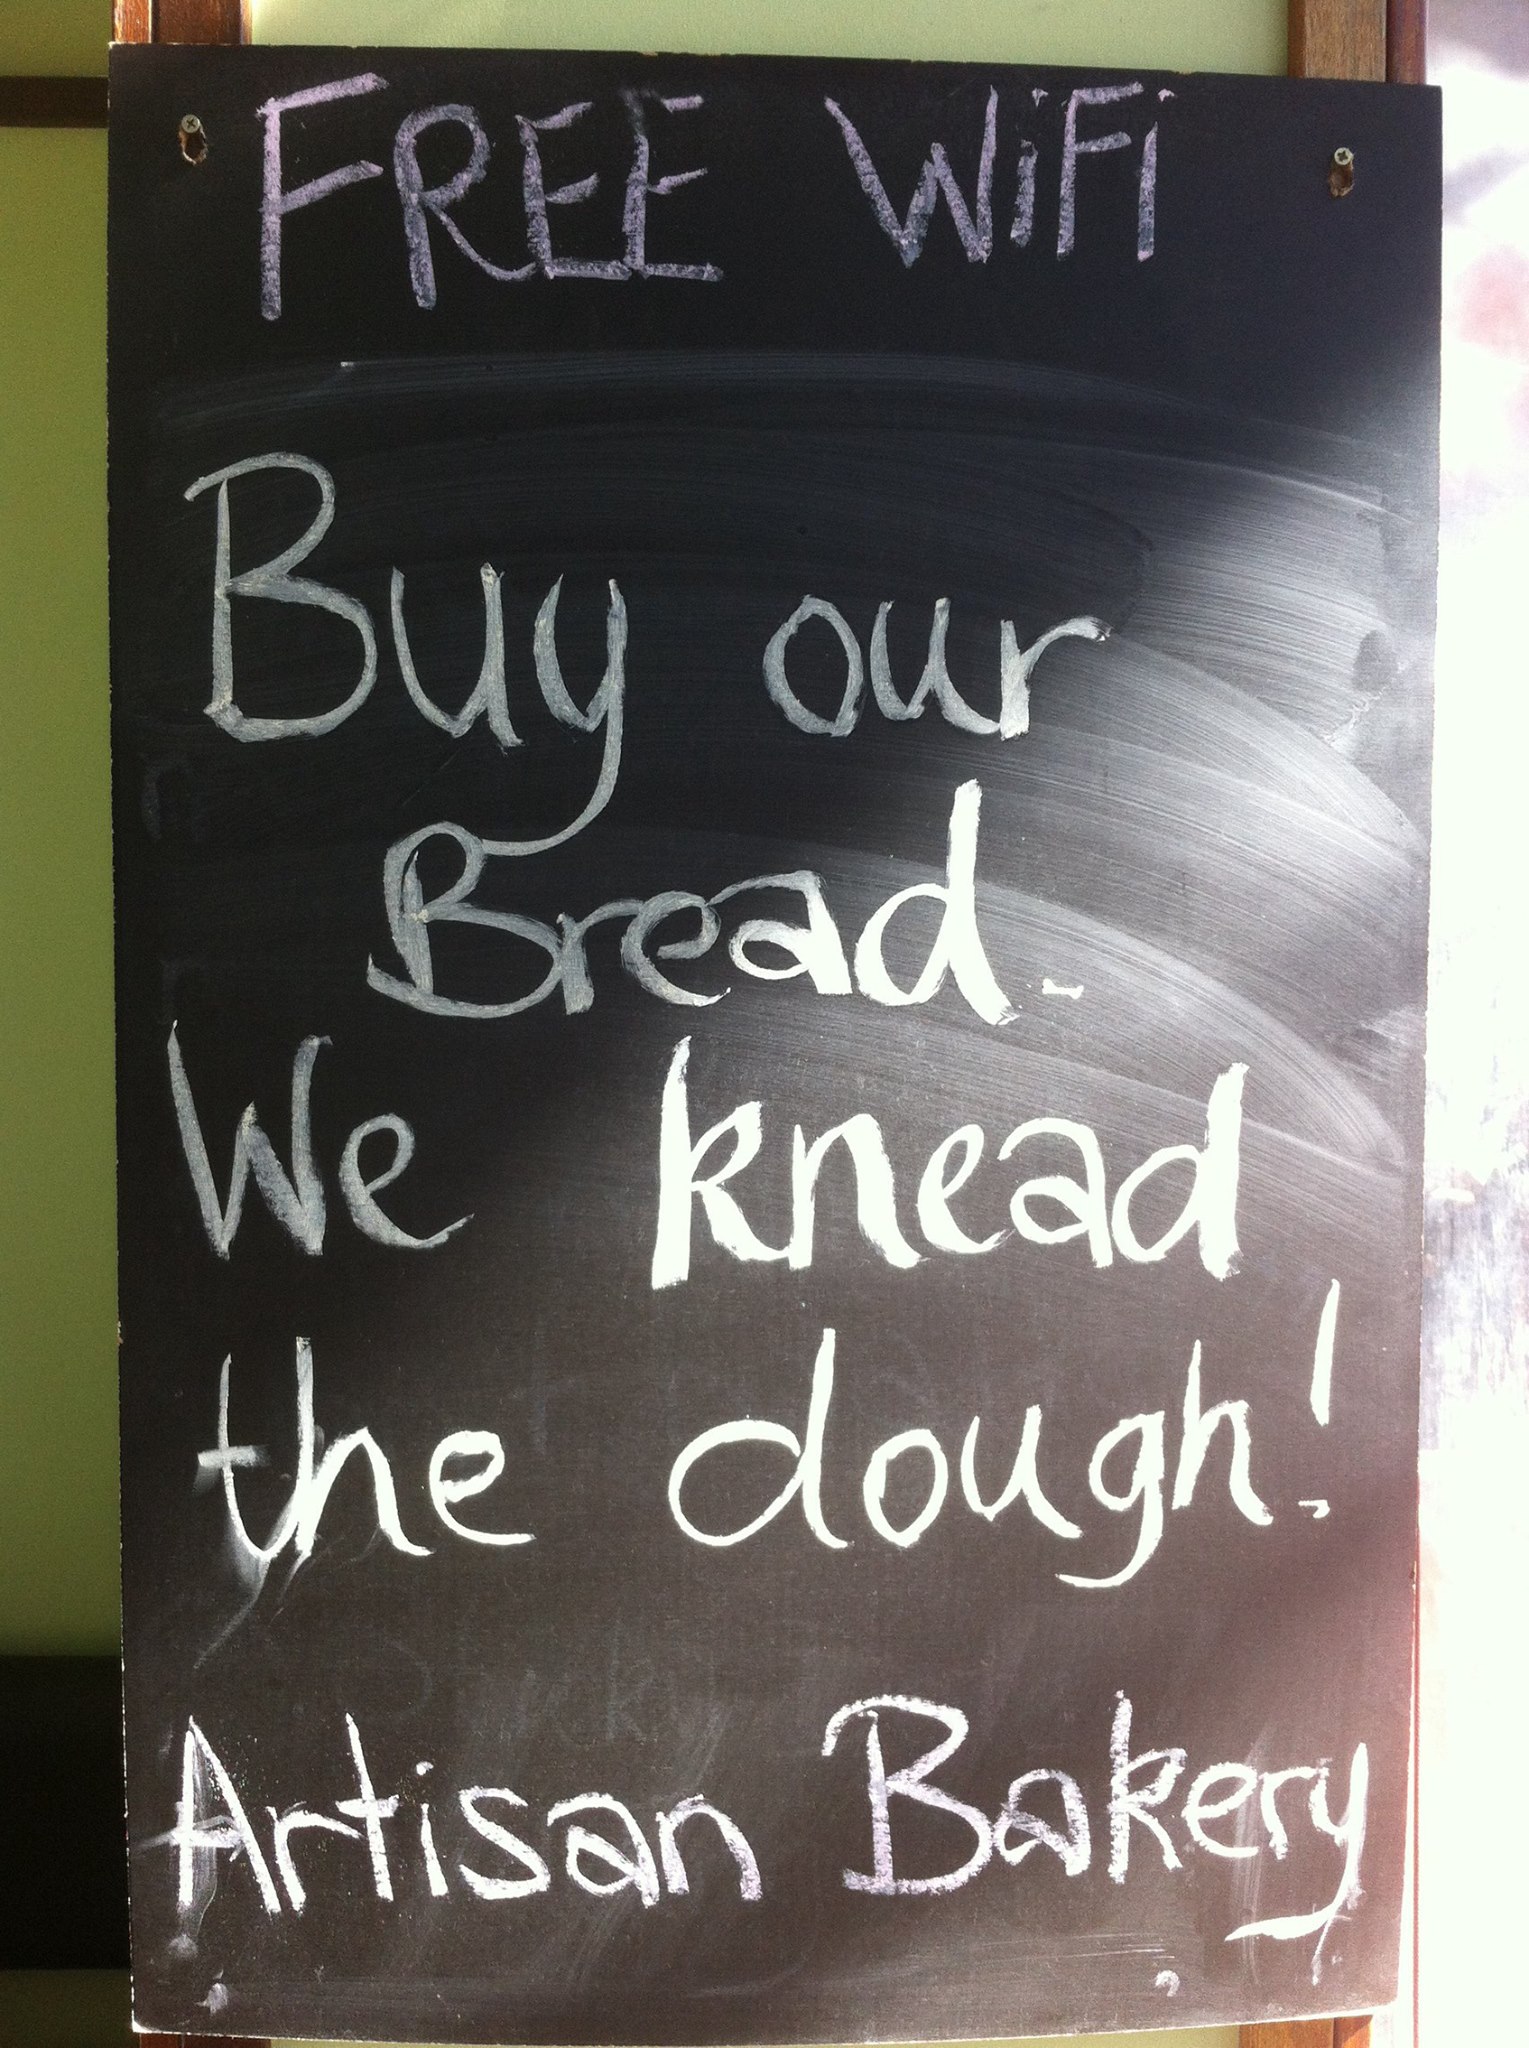 FREE WiFi
Buy our
Bread.
We knead
the dough!
Artisan Bakery